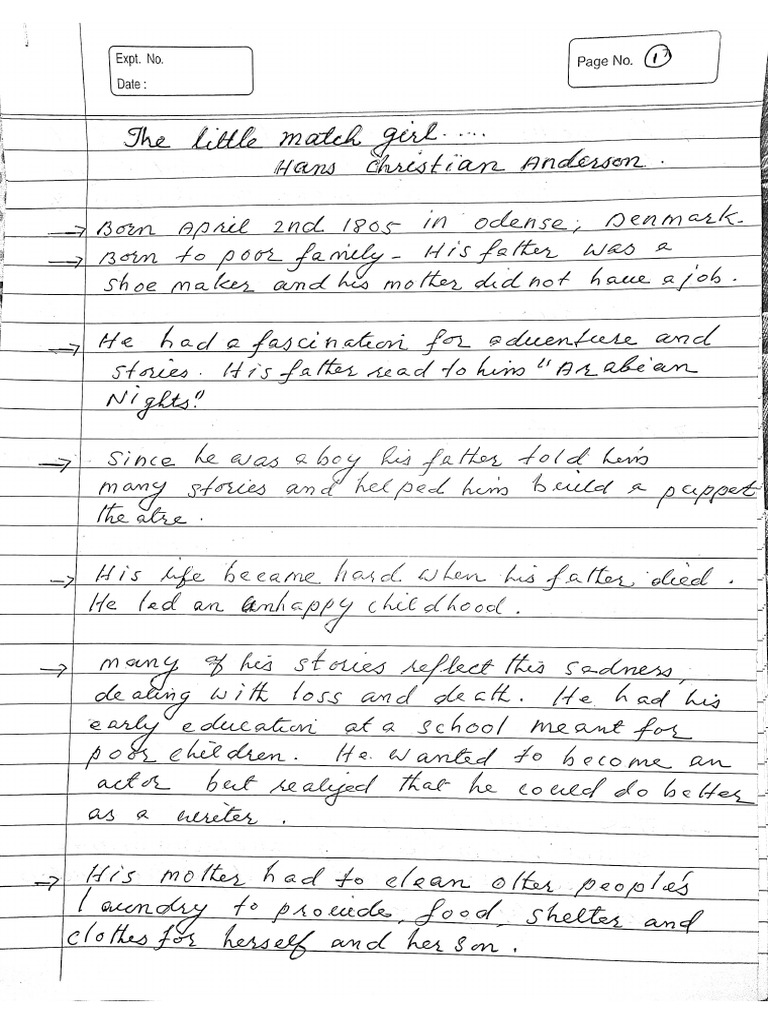 Expt. No.
Date :
Page No. 1
The little match girl.....
Hans Christian Anderson.
→ Born April 2nd 1805 in Odense, Denmark.
→ Born to poor family - His father was a
shoe maker and his mother did not have a job.
→ He had a fascination for adventure and
stories. His father read to him "Arabian
Nights."
→ Since he was a boy his father told him
many stories and helped him build a puppet
theatre.
→ His life became hard when his father, died.
He led an unhappy childhood.
→ many of his stories reflect this sadness,
dealing with loss and death. He had his
early education at a school meant for
poor children. He wanted to become an
actor but realized that he could do better
as a writer.
→ His mother had to clean other people's
laundry to provide, food, shelter and
clothes for herself and her son.